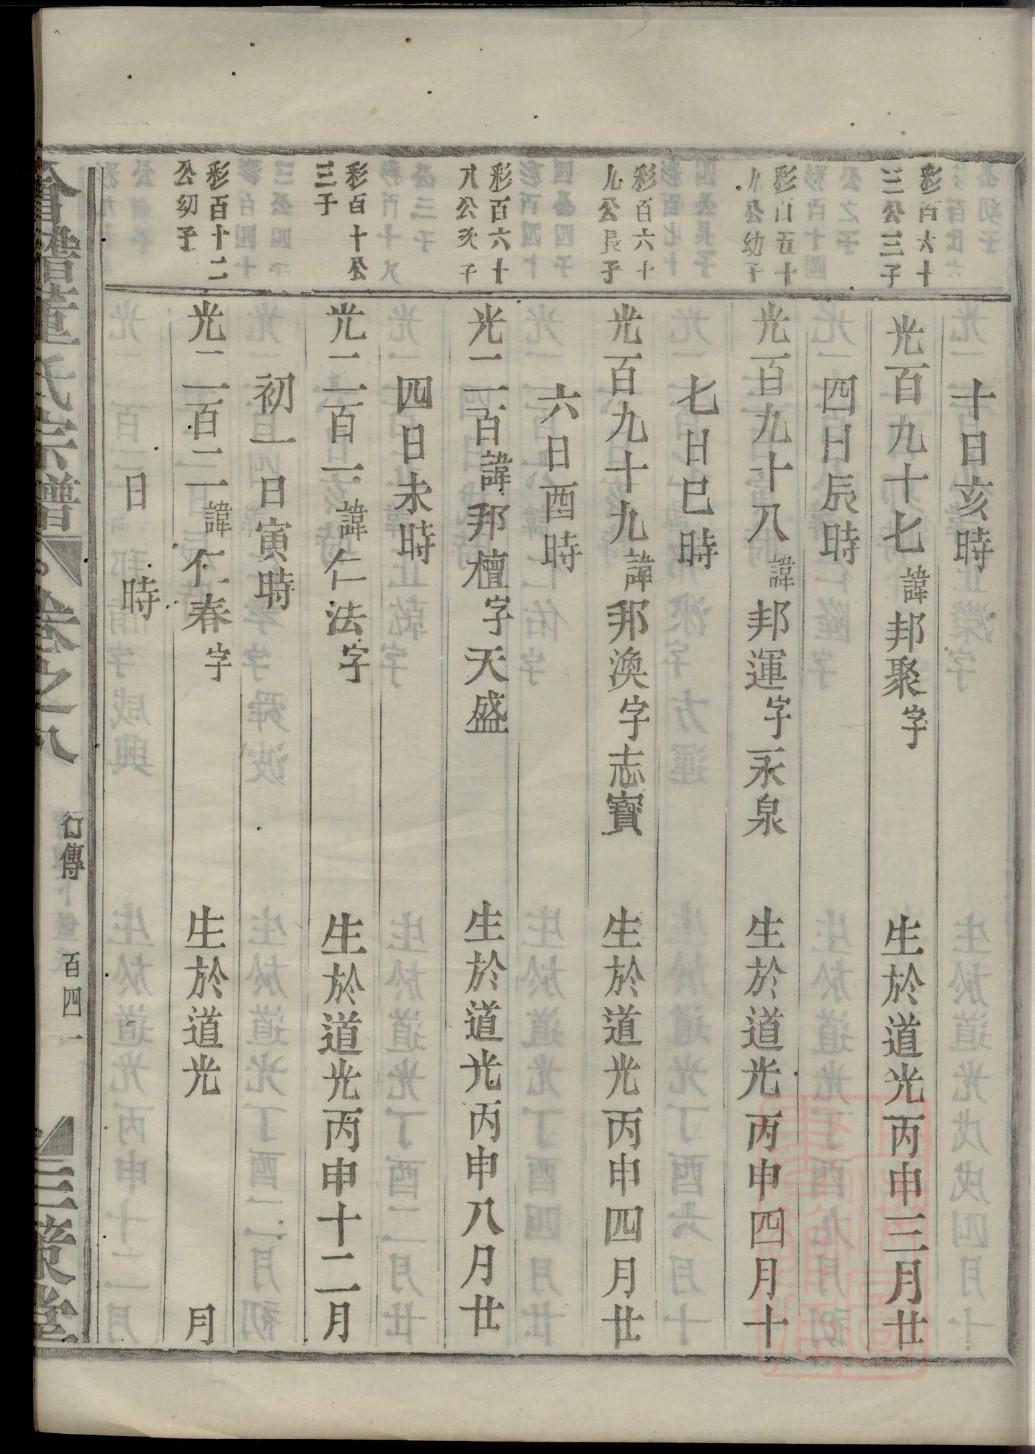 十日亥時
彩百六十
三公三子
光百九十七諱邦聚字 生於道光丙申三月廿
四日辰時
彩百五十
八公幼子
光百九十八諱邦運字永泉 生於道光丙申四月十
七日巳時
彩百六十
九公長子
光百九十九諱邦渙字志寶 生於道光丙申四月廿
六日酉時
彩百六十
八公次子
光二百諱邦檀字天盛 生於道光丙申八月廿
四日未時
彩百十公
三子
光二百一諱仁法字 生於道光丙申十二月
初一日寅時
彩百十二
公幼子
光二百二諱仁春字 生於道光 月
日 時
會稽董氏宗譜 卷之八 行傳 百四一 三策堂